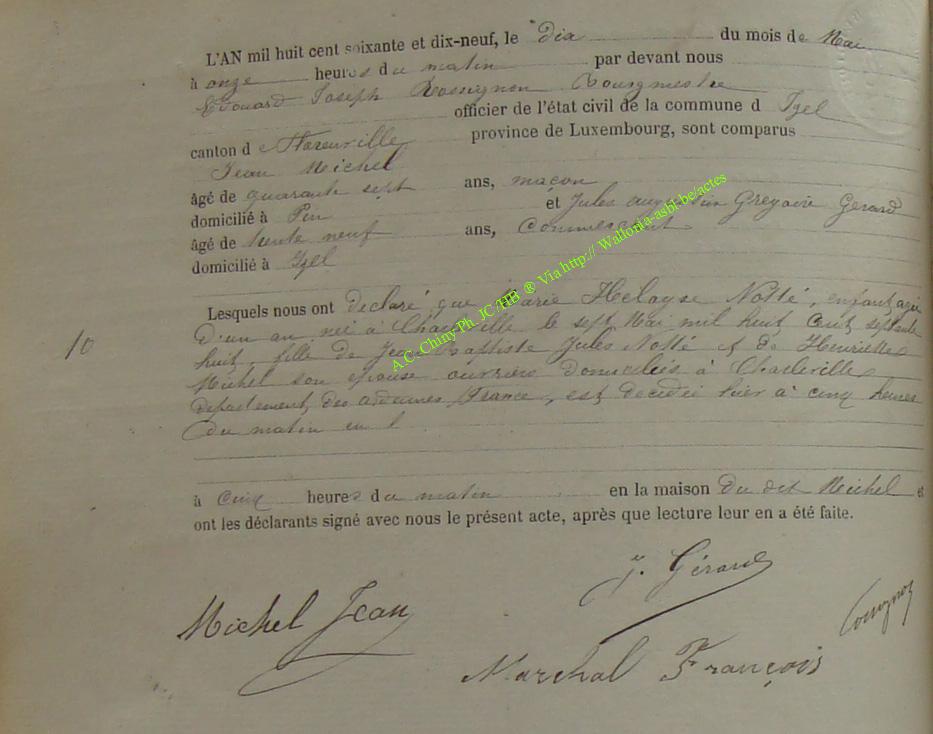 L'AN mil huit cent soixante et dix-neuf, le dix du mois de Mai
à onze heures du matin par devant nous
Edouard Joseph Rossignon Bourgmestre
officier de l'état civil de la commune d Izel
canton d e Florenville province de Luxembourg, sont comparus
Jean Michel
âgé de quarante sept ans, maçon
domicilié à Pin et Jules Grégoire Gerard
âgé de trente neuf ans, Commerçant
domicilié à Izel
Lesquels nous ont declaré que Marie Héloyse Notté, enfant agée
D'un an née à Charleville le sept Mai mil huit Cent septante
10
huit, fille de Jean Baptiste Jules Notté et de Henriette
Michel son épouse ouvriers domiciliés à Charleville
departement des ardennes, France, est decedée hier à cinq heures
du matin en l
à Cinq heures du matin en la maison du dit Michel et
ont les déclarants signé avec nous le présent acte, après que lecture leur en a été faite.
J. Gérard
Michel Jean
Rossignon
Marchal François
A.C. Chiny Ph. JC /HB ® Via http:// Wallonia-asbl-be/actes